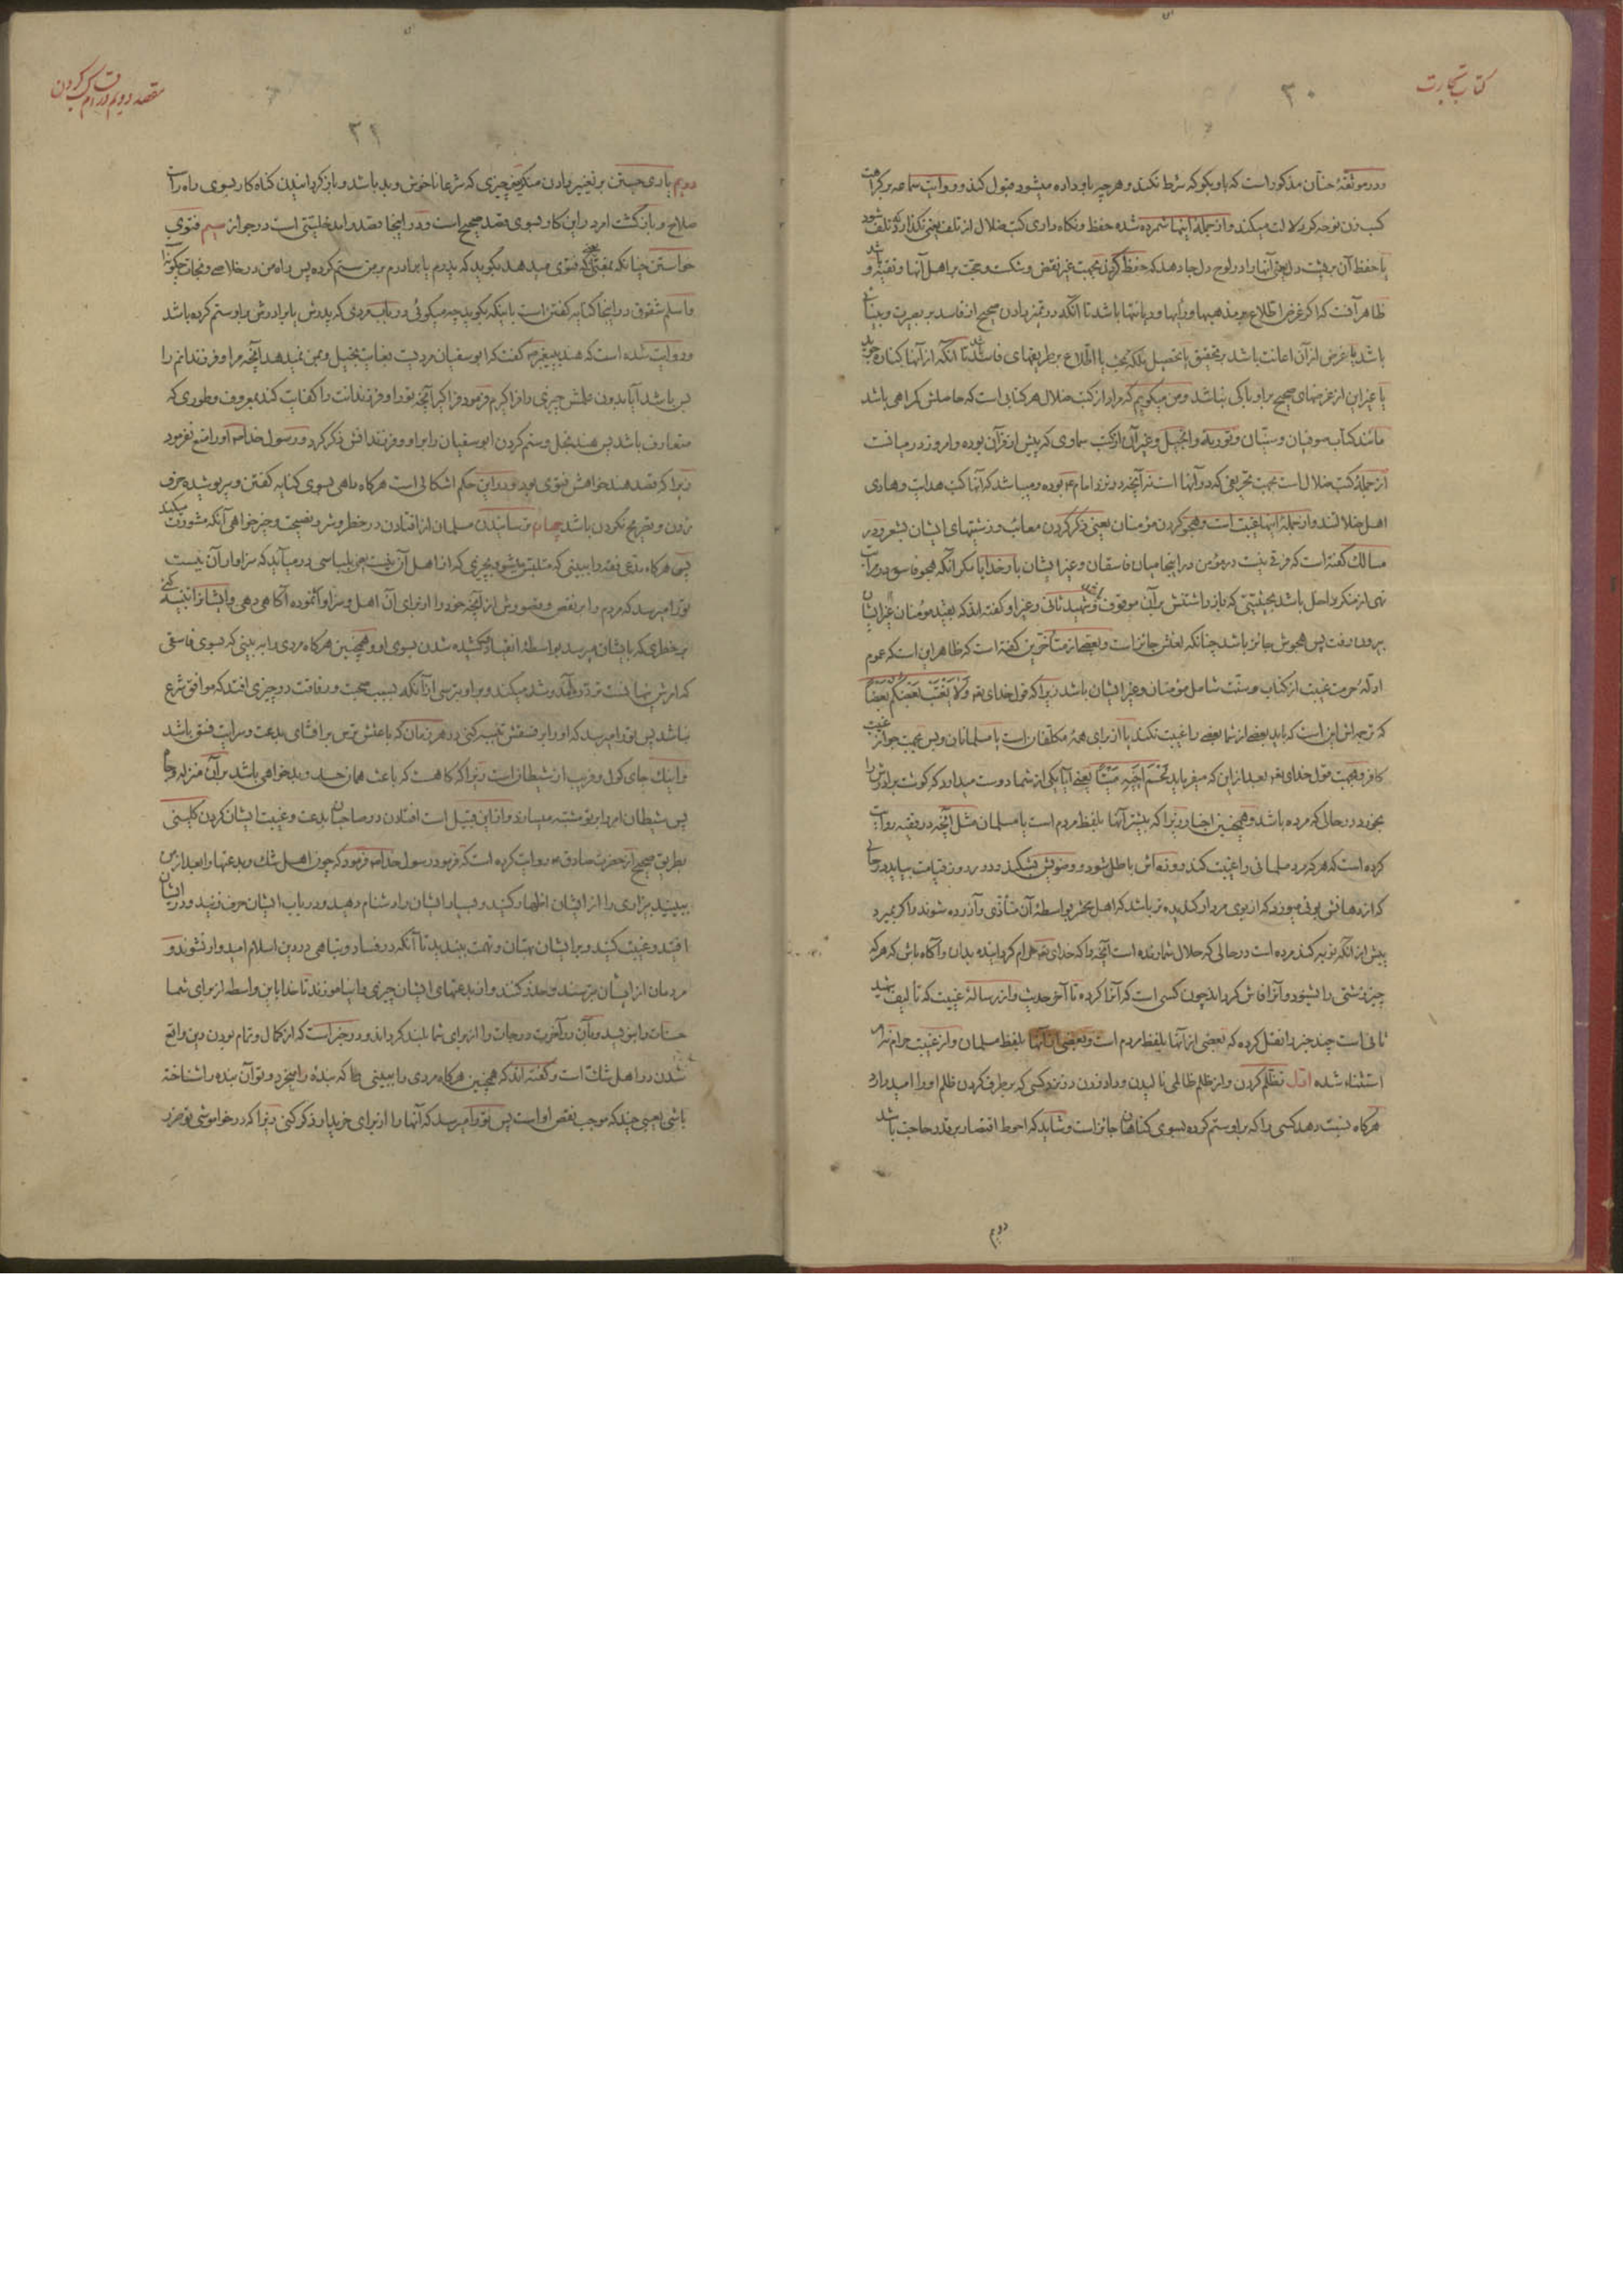 کتاب تجارت
۳۰
ودر موثقهٔ حنان مذکور است که باو بگو که شرط نکند و هرچه باو داده میشود قبول کند و روایت سماعه بر کراهت
کسب زن نوحه‌گر دلالت میکند و از جملهٔ اینها شمرده شده حفظ و نگاه داری کتب ضلال از تلف یعنی نگذارد که تلف شود
یا حفظ آن بر پشت دل یعنی آنها را در لوح دل جا دهد که حفظ کردن بجهت غیر نقض و شکست و حجت بر اهل آنها و تقیه باشد و
ظاهر آنست که اگر غرض اطلاع بر مذهبها و رأیها و دیانتها باشد تا آنکه در تمیز دادن صحیح از فاسد بر بصیرت و بینائی
باشد یا غرض از آن اعانت باشد بر تحقیق یا تحصیل ملکه بحث یا اطلاع بر طریقهای فاسد تا آنکه از آنها کناره جوید
یا غیر این از غرضهای صحیح بر او باکی نباشد و من میگویم که مراد از کتب ضلال هر کتابی است که حاصلش گمراهی باشد
مانند کتاب صوفیان و سنیان و توریة و انجیل و غیر آن از کتب سماوی که پیش از قرآن بوده و امروز در میانست
از جملهٔ کتب ضلال است بجهت تحریفی که در آنها است نه آنچه در نزد امام ع بوده و میباشد که آنها کتب هدایت و هادی
اهل ضلالند و از جملهٔ اینها غیبت است و هجو کردن مؤمنان یعنی ذکر کردن معائب و زشتیهای ایشان بشعر و در
مسالک گفته است که فرقی نیست در مؤمن در اینجا میان فاسقان و غیر ایشان بار خدایا مگر آنکه هجو فاسق در مراتب
نهی از منکر داخل باشد بحیثیتی که باز داشتنش بر آن موقوف باشد و شهید ثانی و غیر او گفته‌اند که بقید مؤمنان غیر ایشان
بیرون رفت پس هجوش جائز باشد چنانکه لعنش جائز است و بعضی از متأخرین گفته است که ظاهر این است که عموم
ادلهٔ حرمت غیبت از کتاب و سنت شامل مؤمنان و غیر ایشان باشد زیرا که قول خدای تع وَلَا يَغْتَبْ بَعْضُكُمْ بَعْضًا
که ترجمه‌اش این است که باید بعضی از شما بعضی را غیبت نکند یا از برای همهٔ مکلفان است یا مسلمانان و بس بجهت جواز غیبت
کافر و بجهت قول خدای تع بعد از این که میفرماید لَحْمَ أَخِيهِ مَيْتًا یعنی آیا یکی از شما دوست میدارد که گوشت برادرش را
بخورد در حالی که مرده باشد و همچنین اخبار زیرا که بیشتر آنها بلفظ مردم است یا مسلمان مثل آنچه در فقیه روایت
کرده است که هر که مرد مسلمانی را غیبت کند روزه‌اش باطل شود و وضویش بشکند و در روز قیامت بیاید در حالی
که از دهانش بوئی میوزد که از بوی مردار گندیده‌تر باشد که اهل محشر بواسطهٔ آن متأذی و آزرده شوند و اگر بمیرد
پیش از آنکه توبه کند مرده است در حالی که حلال شمارنده است آنچه را که خدای تع حرام گردانیده بدان و آگاه باش که هر که
چیز زشتی را بشنود و آنرا فاش گرداند چون کسی است که آنرا کرده تا آخر حدیث و از رسالهٔ غیبت که تألیف شهید
ثانی است چند خبر را نقل کرده که بعضی از آنها بلفظ مردم است و بعضی از آنها بلفظ مسلمان و از غیبت حرام
استثناء شده اول تظلم کردن و از ظلم ظالمی نالیدن و داد زدن در نزد کسی که بر طرف کردن ظلم او را امید دارد
هرگاه نسبت دهد کسی را که بر او ستم کرده بسوی گناهان جائز است و شاید که احوط اقتصار بر قدر حاجت باشد
دویم
مقصد دویم در اقسام کسب کردن
۳۱
دویم یاری جستن بر تغییر دادن منکر یعنی چیزی که شرعا ناخوش و بد باشد و باز گردانیدن گناه کار بسوی راه راست
صلاح و باز گشت امر در این کار بسوی قصد صحیح است و در اینجا قصد را مدخلیتی است در جواز سیم فتوی
خواستن چنانکه بمفتی که فتوی میدهد بگوید که پدرم یا برادرم بر من ستم کرده پس راه من در خلاصی و نجات چگونه
و اسلم شقوق در اینجا کنایه گفتن است باینکه بگوید چه میگوئی در باب مردی که پدرش یا برادرش بر او ستم کرده باشد
و روایت شده است که هند به پیغمبر ص گفت که ابو سفیان مردیست بغایت بخیل و بمن نمیدهد آنچه مرا و فرزندانم را
بس باشد آیا بدون علمش چیزی را فرا گیرم فرمود فراگیر آنچه تو را و فرزندانت را کفایت کند بمعروف و طوری که
متعارف باشد پس هند بخل و ستم کردن ابو سفیان را بر او و فرزندانش ذکر کرد و رسول خدا ص او را منع نفرمود
زیرا که قصد هند خواهش فتوی بود و در این حکم اشکالی است هرگاه راهی بسوی کنایه گفتن و سر پوشیده حرف
زدن و تصریح نکردن باشد چهارم ترسانیدن مسلمان از افتادن در خطر و شر و نصیحت و خیر خواهی آنکه مشورت میکند
پس هرگاه مدعی فقه را ببینی که متلبس میشود بچیزی که از اهل آن نیست یعنی بلباسی در میآید که سزاوار آن نیست
تو را میرسد که مردم را بر نقص و قصورش از آنچه خود را از برای آن اهل و سزاوار نموده آگاهی دهی و ایشانرا تنبیه کنی
بر خطری که بایشان میرسد بواسطهٔ انقیاد و کشیده شدن بسوی او و همچنین هرگاه مردی را ببینی که بسوی فاسقی
که امرش پنهانست تردد و آمد و شد میکند و بر او بترسی از آنکه بسبب صحبت و رفاقت در چیزی افتد که موافق شرع
نباشد پس تو را میرسد که او را بر فسقش تنبیه کنی در هر زمان که باعثش ترس بر افشای بدعت و سرایت فسق باشد
و اینک جای گول و فریب از شیطان است زیرا که گاه هست که باعث همان حسد و بدخواهی باشد بر آن منزله و جاه
پس شیطان امر را بر تو مشتبه میسازد و از این قبیل است افتادن در صاحبان بدعت و غیبت ایشان کردن کلینی
بطریق صحیح از حضرت صادق ع روایت کرده است که فرمود رسول خدا ص فرمود که چون اهل شک و بدعتها را بعد از من
ببینید بیزاری را از ایشان اظهار کنید و بسیار ایشان را دشنام دهید و در باب ایشان حرف زنید و در ایشان
افتید و غیبت کنید و بر ایشان بهتان و تهمت ببندید تا آنکه در فساد و تباهی در دین اسلام امیدوار نشوند و
مردمان از ایشان بترسند و حذر کنند و از بدعتهای ایشان چیزی را نیاموزند تا خدا باین واسطه از برای شما
حسنات را بنویسد و بآن در آخرت درجات را از برای شما بلند گرداند و در خبر است که از کمال و تمام بودن دین واقع
شدن در اهل شک است و گفته‌اند که همچنین هرگاه مردی را ببینی که بنده را میخرد و تو آن بنده را شناخته
باشی بعیبی چند که موجب نقص او است پس تو را میرسد که آنها را از برای خریدار ذکر کنی زیرا که در خواموشی تو ضرر